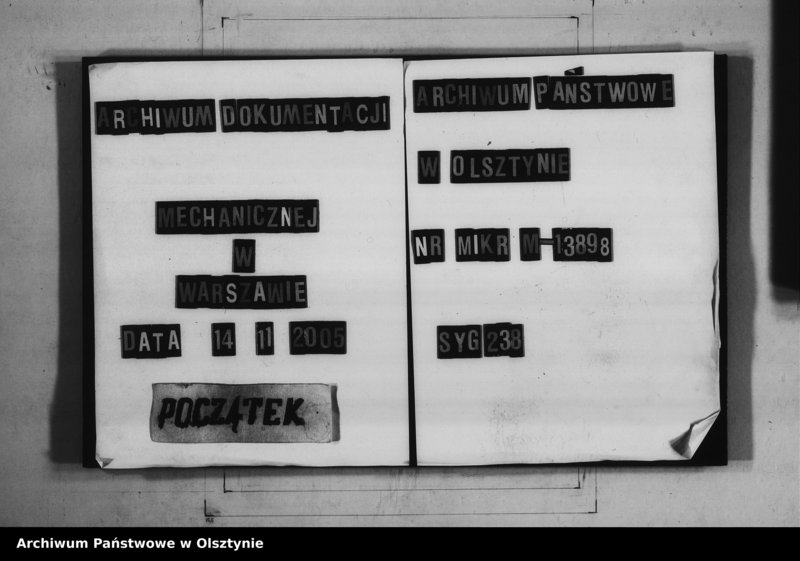 ARCHIWUM DOKUMENTACJI
MECHANICZNEJ
W
WARSZAWIE
DATA 14 11 2005
POCZĄTEK
ARCHIWUM PAŃSTWOWE
W OLSZTYNIE
NR MIKR M-13898
SYG 238
Archiwum Państwowe w Olsztynie